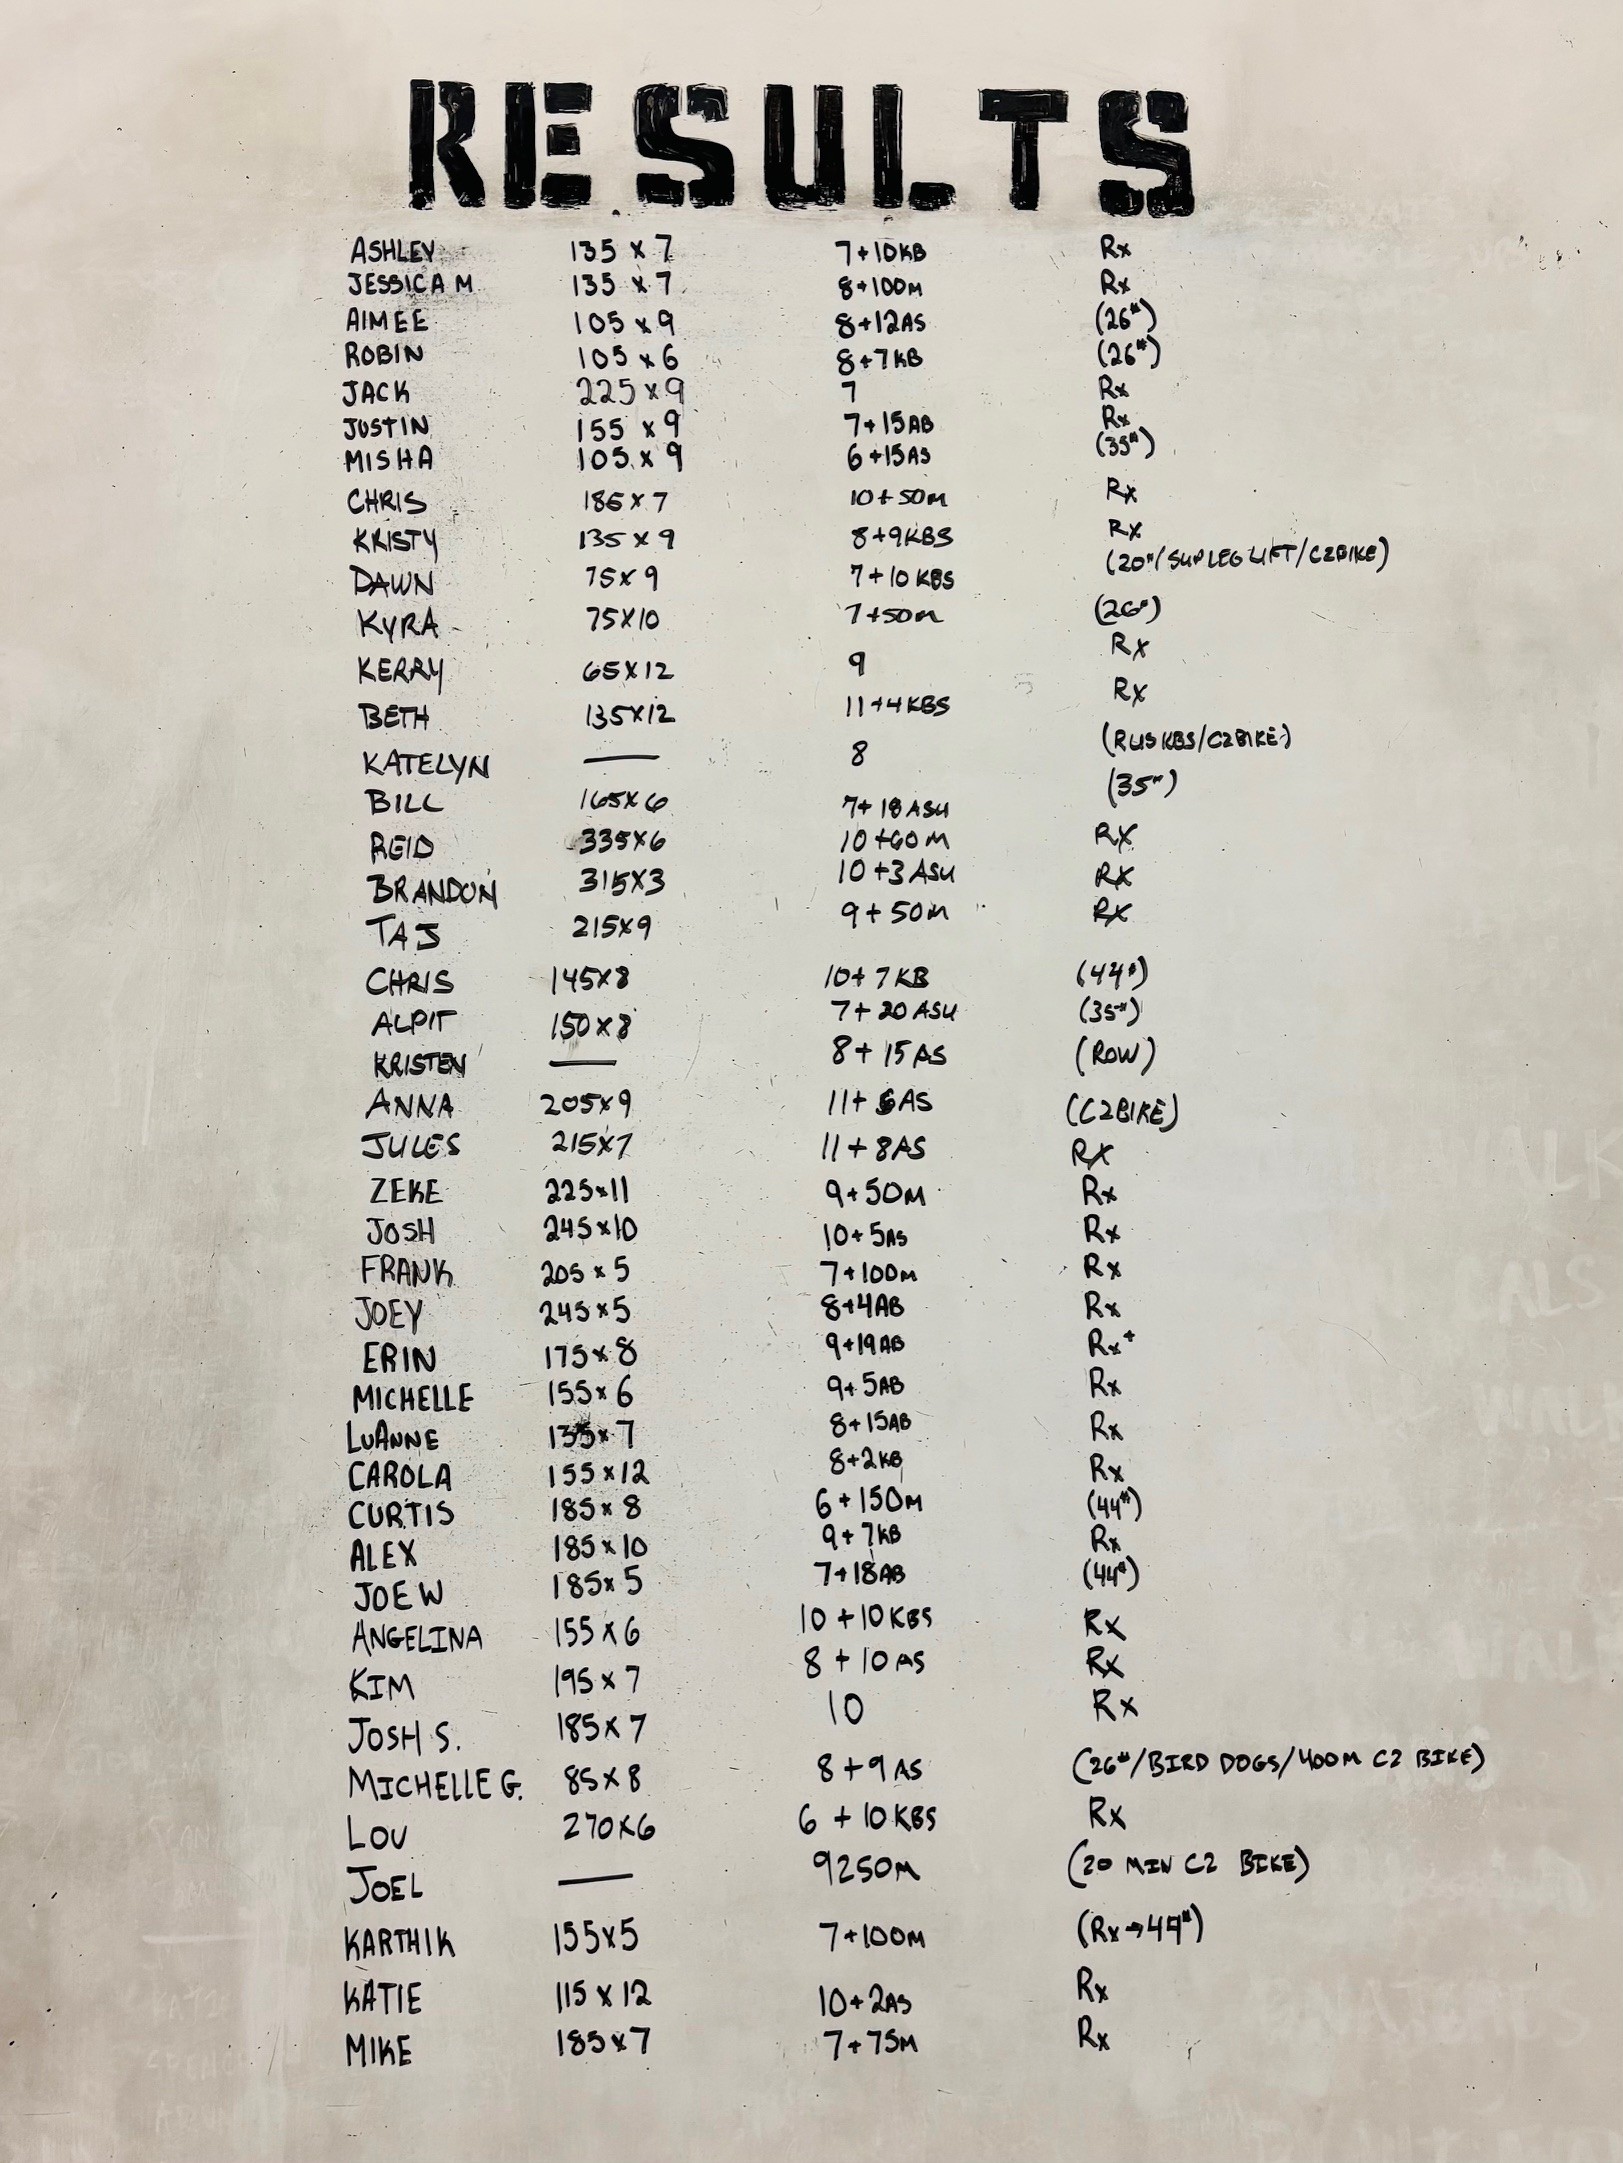 RESULTS
ASHLEY 135 x 7 7+10KB Rx
JESSICA M 135 x 7 8+100M Rx
AIMEE 105 x 9 8+12AS (26#)
ROBIN 105 x 6 8+7KB (26#)
JACK 225 x 9 7 Rx
JUSTIN 155 x 9 7+15AB Rx
MISHA 105 x 9 6+15AS (35#)
CHRIS 185 x 7 10+50M Rx
KRISTY 135 x 9 8+9KBS Rx
DAWN 75 x 9 7+10 KBS (20#/SUP LEG LIFT/C2BIKE)
KYRA 75X10 7+50M (26#)
KERRY 65X12 9 Rx
BETH 135X12 11+4KBS Rx
KATELYN — 8 (RUS KBS/C2BIKE)
BILL 165X6 7+18 ASU (35#)
REID 335X6 10+60M RX
BRANDON 315X3 10+3 ASU RX
TAJ 215X9 9+50M RX
CHRIS 145X8 10+7 KB (44#)
ALPIT 150X8 7+20 ASU (35#)
KRISTEN — 8+15 AS (ROW)
ANNA 205X9 11+6AS (C2BIKE)
JULES 215X7 11+8AS RX
ZEKE 225x11 9+50M Rx
JOSH 245x10 10+5AS Rx
FRANK 205 x 5 7+100M Rx
JOEY 245x5 8+4AB Rx
ERIN 175x8 9+19AB Rx+
MICHELLE 155x6 9+5AB Rx
LUANNE 135x7 8+15AB Rx
CAROLA 155x12 8+2KB Rx
CURTIS 185x8 6+150M (44#)
ALEX 185x10 9+7KB Rx
JOE W 185x5 7+18AB (44#)
ANGELINA 155 X 6 10+10 KBS RX
KIM 195 x 7 8+10 AS RX
JOSH S. 185X7 10 RX
MICHELLE G. 85X8 8+9 AS (26#/BIRD DOGS/400M C2 BIKE)
LOU 270X6 6+10 KBS RX
JOEL — 9250M (20 MIN C2 BIKE)
KARTHIK 155x5 7+100M (Rx→44#)
KATIE 115 x 12 10+2AS Rx
MIKE 185x7 7+75M Rx